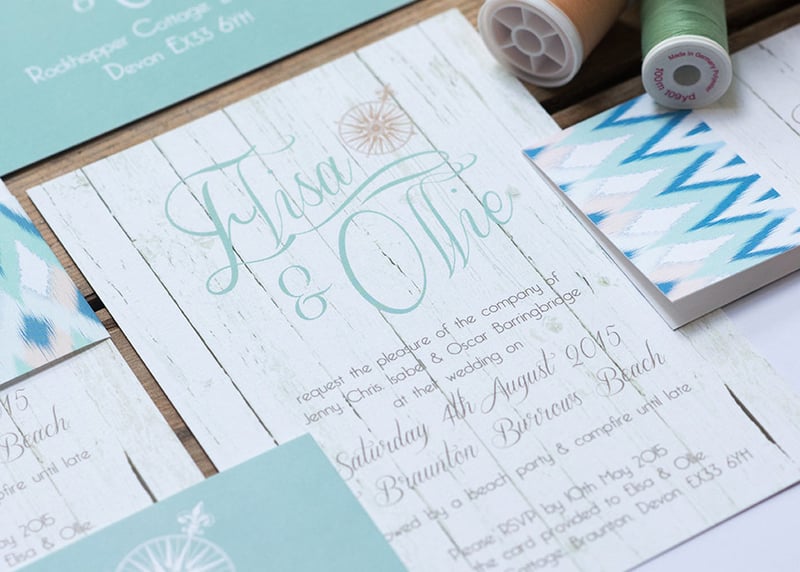 &
Rockhopper Cottage
Devon EX33 6YH
Made in Germany Polyester
100m 109yd
Elisa
& Ollie
request the pleasure of the company of
Jenny, Chris, Isabel & Oscar Barringbridge
at their wedding on
Saturday 4th August 2015
Braunton Burrows Beach
owed by a beach party & campfire until late
Please RSVP by 10th May 2015
the card provided to Elisa & Ollie
Cottage, Braunton, Devon EX33 6YH
15
Beach
mpfire until late
ay 2015
Elisa & Ollie